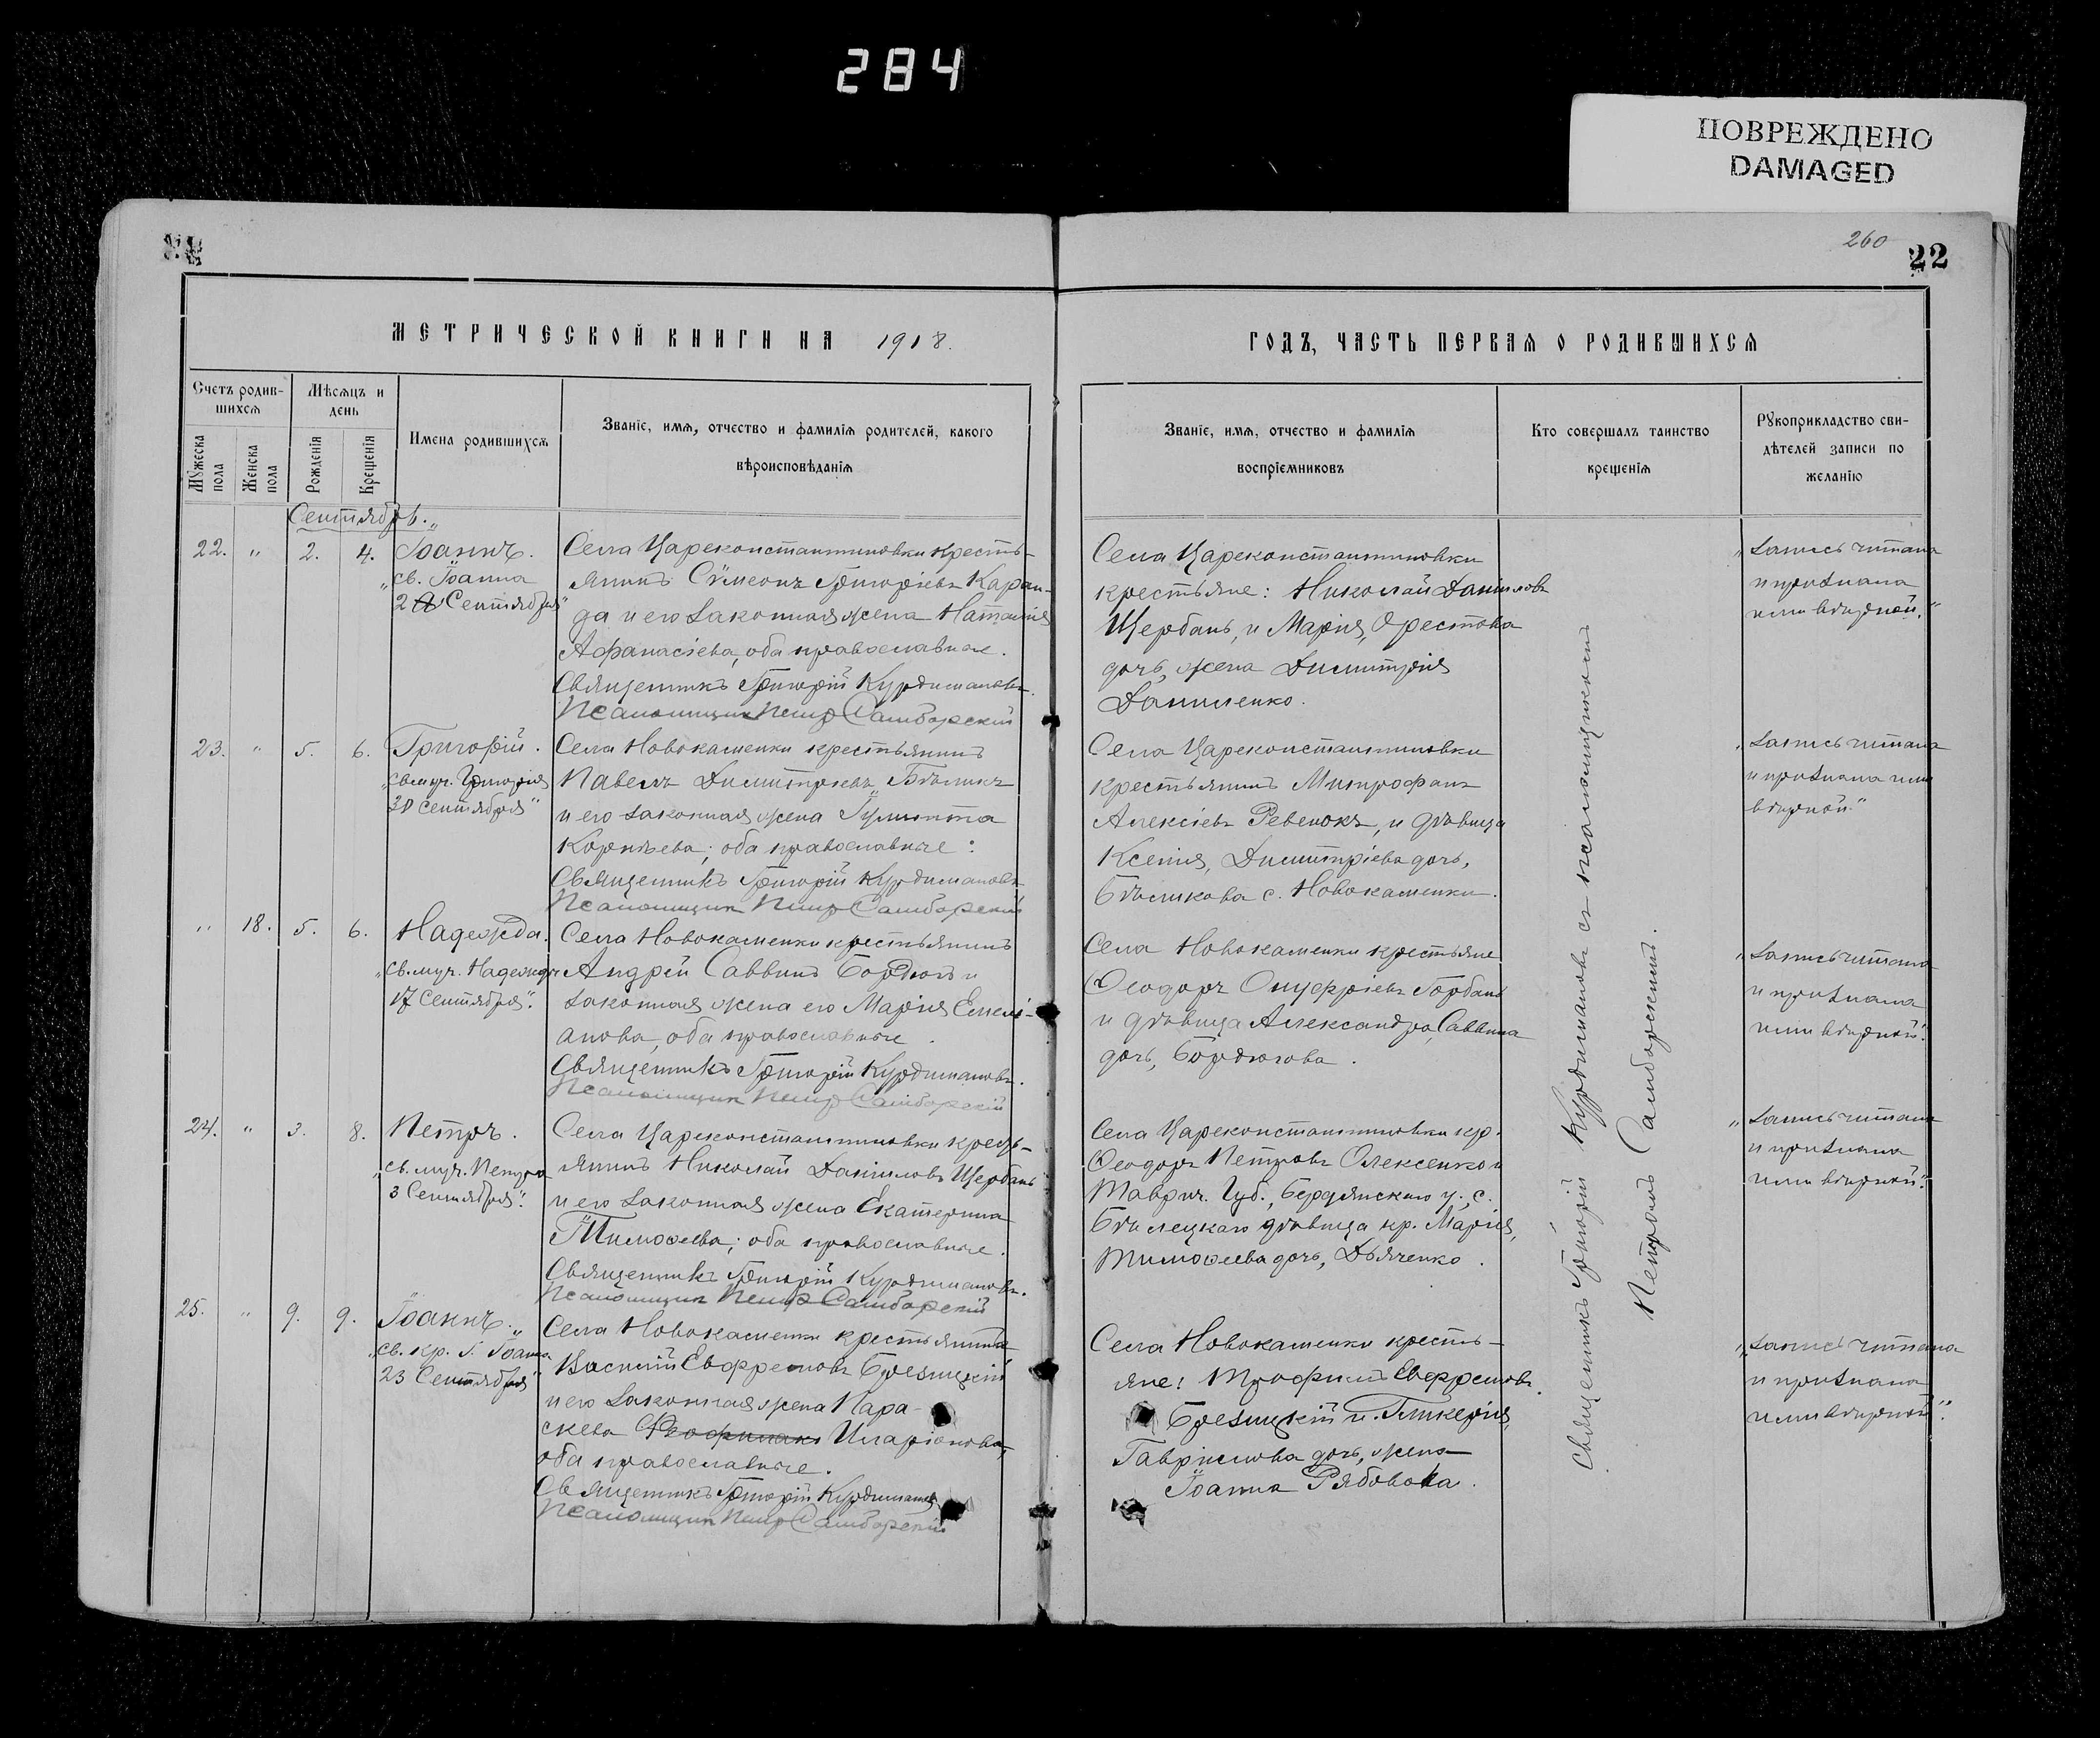 284
ПОВРЕЖДЕНО
DAMAGED
260
22
МЕТРИЧЕСКОЙ КНИГИ НА 1918.
ГОДЪ, ЧАСТЬ ПЕРВАЯ О РОДИВШИХСЯ
Счетъ родив-
шихся
Мужеска
пола
Женска
пола
Мѣсяцъ и
день
Рожденія
Крещенія
Имена родившихся
Званіе, имя, отчество и фамилія родителей, какого
вѣроисповѣданія
Званіе, имя, отчество и фамилія
воспріемниковъ
Кто совершалъ таинство
крещенія
Рукоприкладство сви-
дѣтелей записи по
желанію
Сентябрь.
22. " 2. 4. Іоаннъ.
"св. Іоанна
2 Сентября"
Села Цареконстантиновки кресть-
янинъ Сѵмеонъ Григоріевъ Каран-
да и его законная жена Наталія
Афанасіева, оба православные.
Священникъ Григорій Курдимановъ.
Псаломщик Петр Самборскій
Села Цареконстантиновки
крестьяне: Николай Даніиловъ
Щербань, и Марія, Орестова
дочь, жена Димитрія
Даниленко.
"Запись читана
и признана
ими вѣрной."
23. " 5. 6. Григорій.
"свмуч. Григорія
30 Сентября"
Села Новокаменки крестьянинъ
Павелъ Димитріевъ Бѣликъ
и его законная жена Іулитта
Корнѣева; оба православные:
Священникъ Григорій Курдимановъ
Псаломщик Петр Самборскій
Села Цареконстантиновки
крестьянинъ Митрофанъ
Алексіевъ Ревенокъ, и дѣвица
Ксенія, Димитріева дочь,
Бѣликова с. Новокаменки.
"Запись читана
и признана ими
вѣрной."
" 18. 5. 6. Надежда.
"св. муч. Надежды
17 Сентября".
Села Новокаменки крестьянинъ
Андрей Саввинъ Бордюгъ и
законная жена его Марія Емелі-
анова, оба православные.
Священникъ Григорій Курдимановъ.
Псаломщик Петр Самборскій
Села Новокаменки крестьяне
Ѳеодоръ Онуфріевъ Горбань
и дѣвица Александра, Саввина
дочь, Бордюгова.
"Запись читана
и признана
ими вѣрной".
24. " 3. 8. Петръ.
"св. муч. Петра
3 Сентября".
Села Цареконстантиновки крест-
янинъ Николай Даніиловъ Щербань
и его законная жена Екатерина
Тимоѳеева; оба православные.
Священникъ Григорій Курдимановъ.
Псаломщик Петр Самборскій
Села Цареконстантиновки кр.
Ѳеодоръ Петровъ Олексенко и
Таврич. Губ., Бердянскаго у., с.
Бѣлецкаго дѣвица кр. Марія,
Тимоѳеева дочь, Дьяченко.
"Запись читана
и признана
ими вѣрной".
25. " 9. 9. Іоаннъ.
"св. кр. Г. Іоанна
23 Сентября"
Села Новокаменки крестьянинъ
Василій Евфремовъ Брезицкій
и его законная жена Пара-
скева Иларіонова,
оба православные.
Священникъ Григорій Курдимановъ
Псаломщик Петр Самборскій
Села Новокаменки кресть-
яне: Трофимъ Евфремовъ
Брезицкій и Гликерія,
Гавріилова дочь, жена
Іоанна Рябовола.
"Запись читана
и признана
ими вѣрной".
Священникъ Григорій Курдимановъ съ псаломщикомъ
Петромъ Самборскимъ.